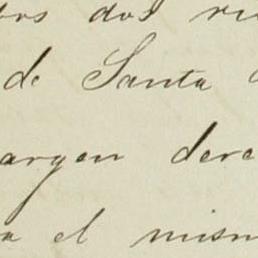 dos
de Santa
argen dere
el mism